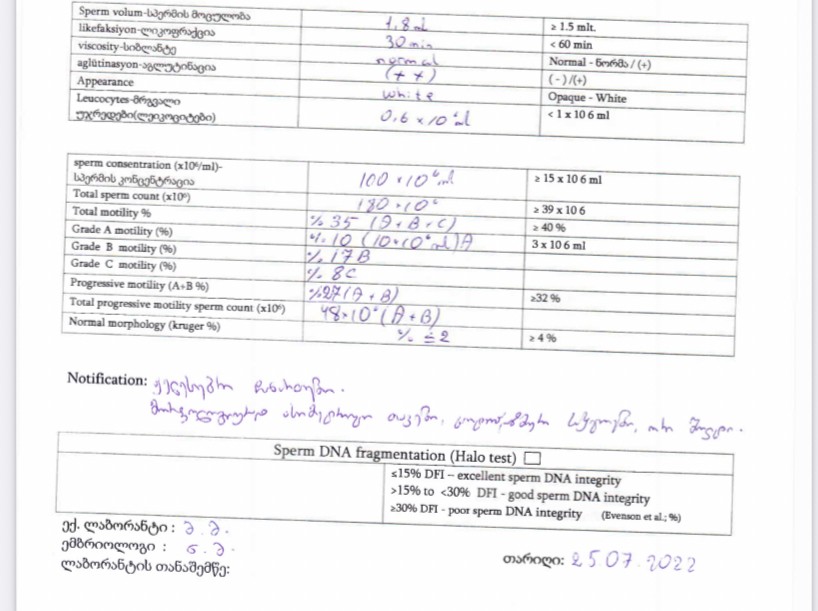 Sperm volum-სპერმის მოცულობა 1,8 ml ≥ 1.5 mlt.
likefaksiyon-ლიკოფრაქცია 30 min < 60 min
viscosity-სიბლანტე normal Normal - ნორმა / (+)
aglütinasyon-აგლუტინაცია (+ +) ( - ) /(+)
Appearance white Opaque - White
Leucocytes-მრგვალი 0,6 x 10⁶ ml < 1 x 10 6 ml
უჯრედები(ლეიკოციტები)
sperm consentration (x10⁶/ml)- 100 x 10⁶ ml ≥ 15 x 10 6 ml
სპერმის კონცენტრაცია
Total sperm count (x10⁶) 180 x 10⁶ ≥ 39 x 10 6
Total motility % % 35 (A + B + C) ≥ 40 %
Grade A motility (%) % 10 (10 x 10⁶ ml) A 3 x 10 6 ml
Grade B motility (%) % 17 B
Grade C motility (%) % 8 C
Progressive motility (A+B %) % 27 (A + B) ≥32 %
Total progressive motility sperm count (x10⁶) 48 x 10⁶ (A + B)
Normal morphology (kruger %) % = 2 ≥ 4 %
Notification:
Sperm DNA fragmentation (Halo test)
≤15% DFI – excellent sperm DNA integrity
>15% to <30% DFI - good sperm DNA integrity
≥30% DFI - poor sperm DNA integrity (Evenson et al.; %)
ექ. ლაბორანტი : მ. მ.
ემბრიოლოგი : ნ. მ.
ლაბორანტის თანაშემწე:
თარიღი: 25.07.2022